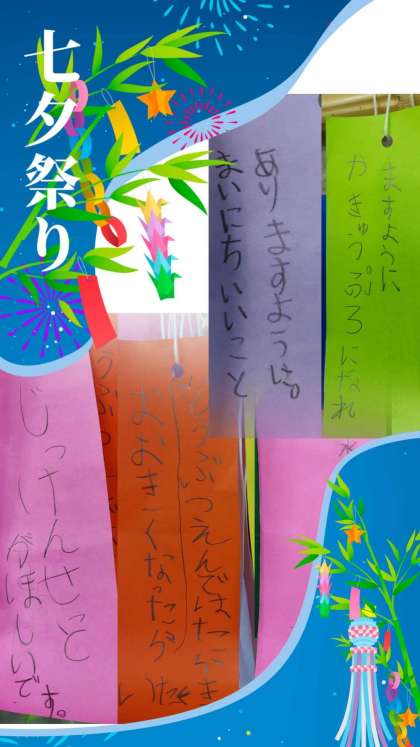 七夕祭り
まいにちいいこと
ありますように。
やきゅうぷろになれ
ますように
じっけんせっと
がほしいです。
おおきくなったら
ぶつえんではたらき